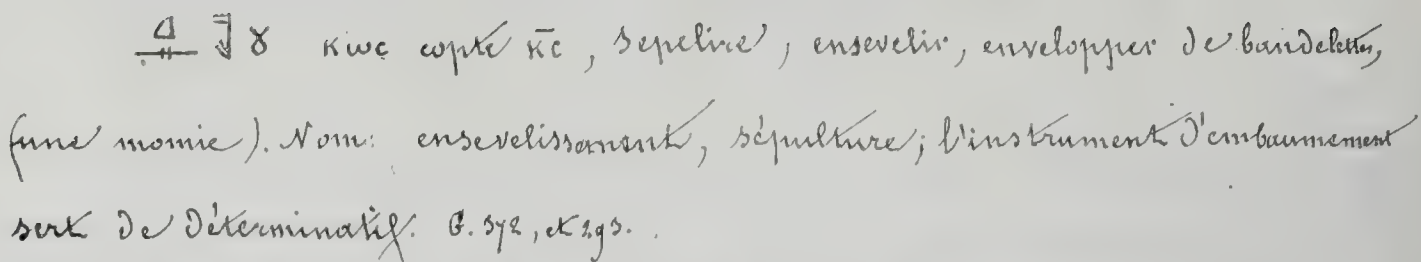 κωс copte κ̄с, sepelire, ensevelir, envelopper de bandelettes,
(une momie). Nom: ensevelissement, sépulture; l'instrument d'embaumement
sert de déterminatif. G. 372, et 293.